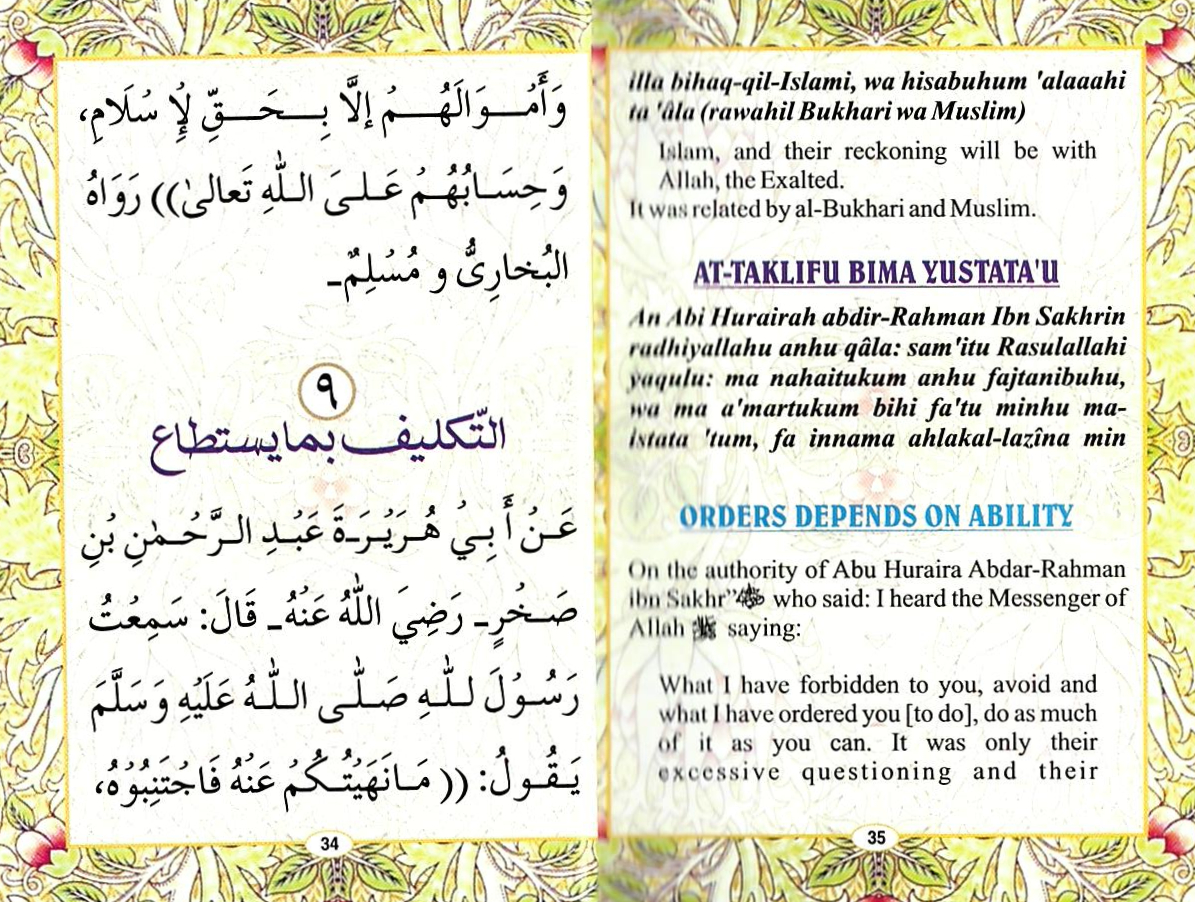 وَأَمُـــوَالَهُـــمُ إلَّا بِـــحَـــقِّ لُإِ سُلَامِ،
وَحِسَـابُهُـمُ عَـلـىَ الـلّٰهِ تَعالىٰ)) رَوَاهُ
البُخارِىُّ و مُسُلِمٌـ
٩
التّكليف بما يستطاع
عَـنُ أَ بِـيُ هُـرَيُـرَـةَ عَبُـدِ الـرَّحُـمٰنِ بُنِ
صَـخُـرٍـ رَضِيَ اللّٰهُ عَنُهُـ قَالَ: سَمِعُتُ
رَسُـوُلَ لـلّٰـهِ صَـلّٰـى الـلّٰـهُ عَلَيُهِ وَسَلَّمَ
يَـقُـولُ: (( مَـانَهَيُتُـكُمُ عَنُهُ فَـاجُتَنِبُوُهُ،
34
illa bihaq-qil-Islami, wa hisabuhum 'alaaahi
ta 'âla (rawahil Bukhari wa Muslim)
Islam, and their reckoning will be with
Allah, the Exalted.
It was related by al-Bukhari and Muslim.
AT-TAKLIFU BIMA YUSTATA'U
An Abi Hurairah abdir-Rahman Ibn Sakhrin
radhiyallahu anhu qâla: sam'itu Rasulallahi
yaqulu: ma nahaitukum anhu fajtanibuhu,
wa ma a'martukum bihi fa'tu minhu ma-
istata 'tum, fa innama ahlakal-lazîna min
ORDERS DEPENDS ON ABILITY
On the authority of Abu Huraira Abdar-Rahman
ibn Sakhr” who said: I heard the Messenger of
Allah ﷺ saying:
What I have forbidden to you, avoid and
what I have ordered you [to do], do as much
of it as you can. It was only their
excessive questioning and their
35